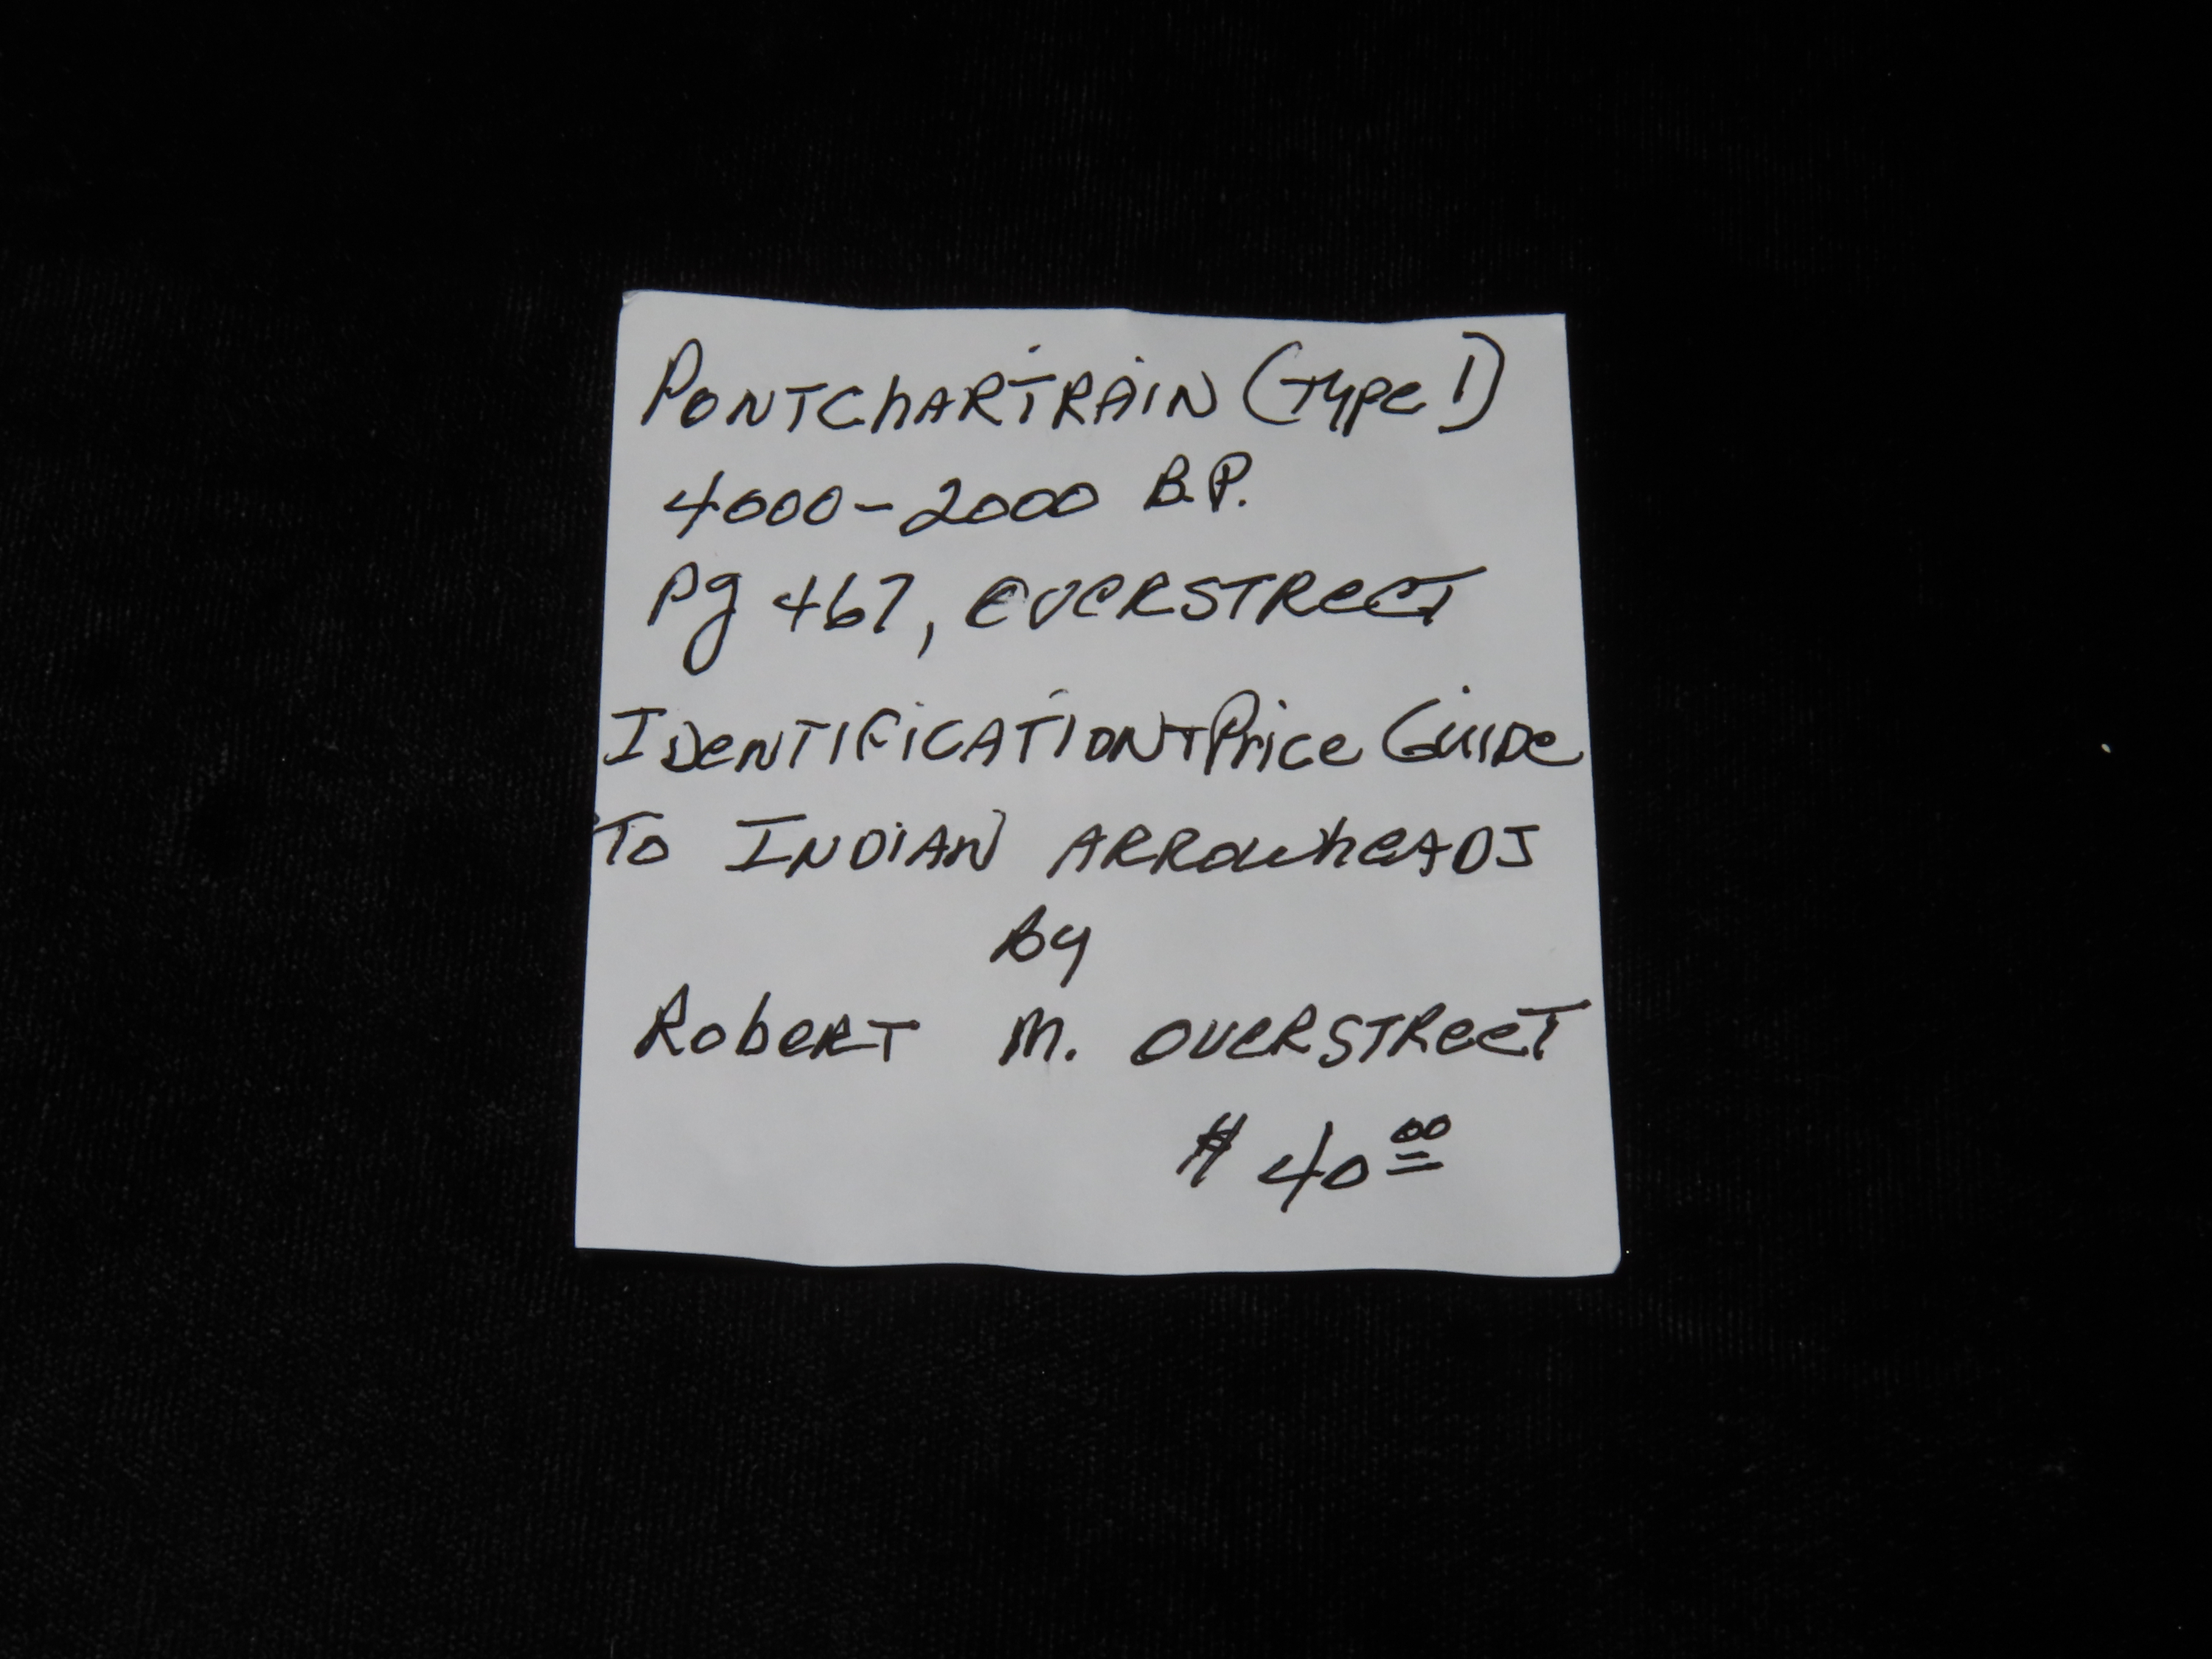 PONTCHARTRAIN (TYPE I)
4000-2000 B.P.
Pg 467, OVERSTREET
IDENTIFICATION + Price GUIDE
TO INDIAN ARROWHEADS
by
Robert M. OVERSTREET
$ 40.00